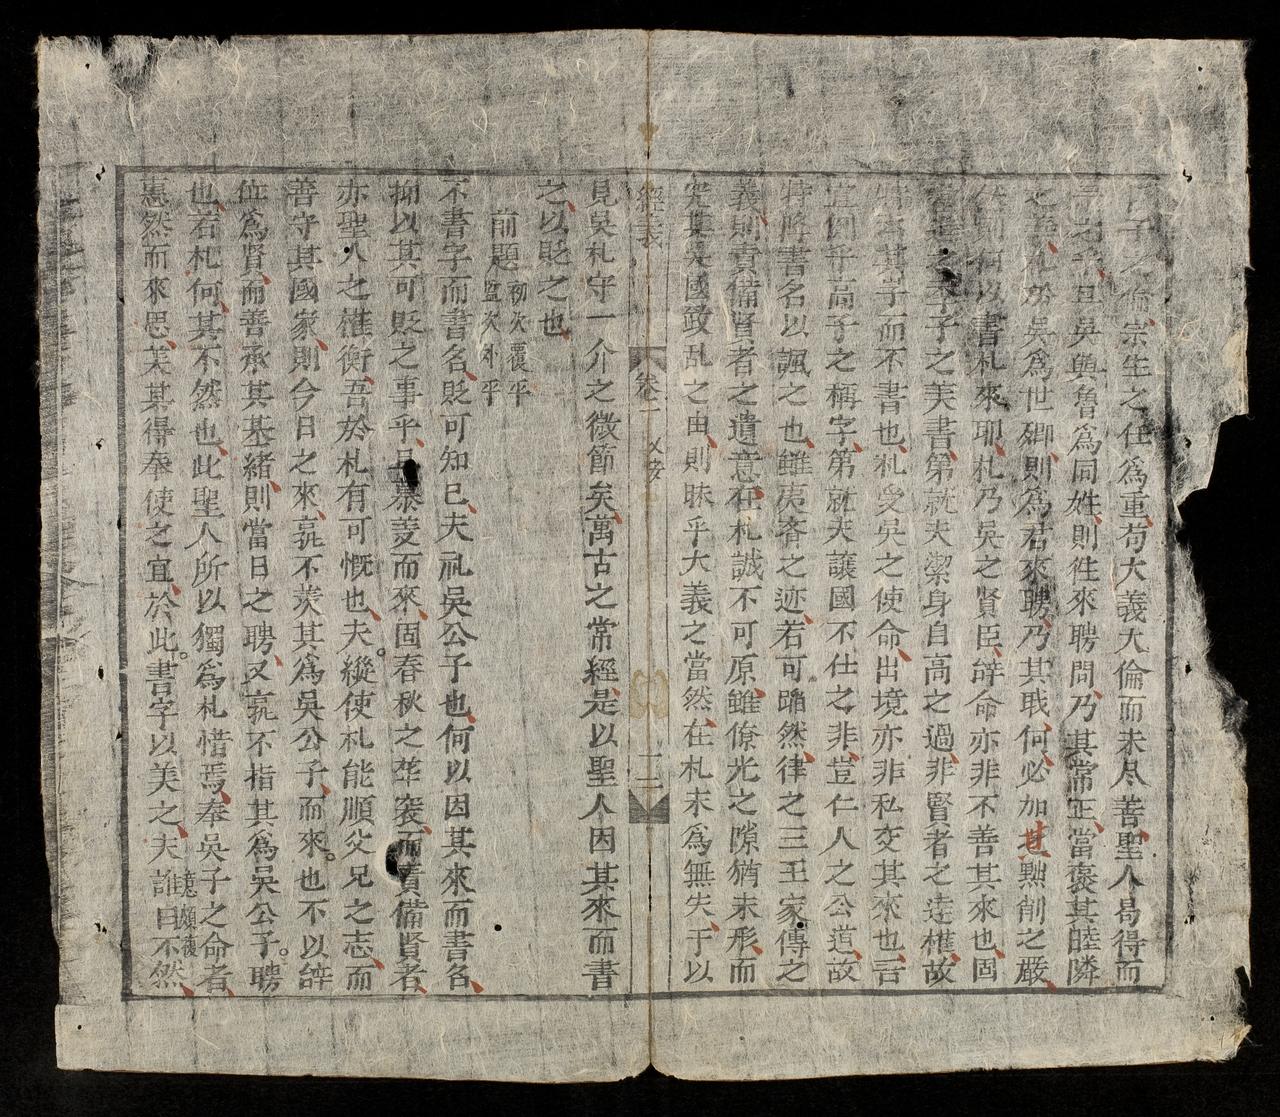 子之倫宗生之任爲重苟大義大倫而未尽善聖人曷得而
之辛且吳與魯爲同姓則徃來聘問乃其常正當褒其睦隣
之至札於吳爲世卿則爲君來聘乃其戝何必加甚㸃削之嚴
則何以書札來耶札乃吳之賢臣辞命亦非不善其來也固
季子之美書第就夫潔身自高之過非賢者之逹權故
其字而不書也札受吳之使命出境亦非私交其來也吾
例乎高子之稱字第就夫讓國不仕之非豈仁人之公道故
特降書名以諷之也雖夷吝之迹若可踊然律之三王家傳之
義則責備賢者之遺意在札誠不可原雖僚光之隙猶未形而
究其吳國致乱之由則昧乎大義之當然在札未爲無失于以
經義 卷一 二
見吳札守一介之微節矣萬古之常經是以聖人因其來而書
之以貶之也
前題 初次覆平 監次外平
不書字而書名貶可知已夫札吳公子也何以因其來而書名
抑以其可貶之事乎具慕菱而來固春秋之華衮而責備賢者
亦聖人之權衡吾於札有可慨也夫縱使札能順父兄之志而
善守其國家則今日之來孰不羡其爲吳公子而來也不以辞
位爲賢而善承其基緒則當日之聘又孰不指其爲吳公子聘
也若札何其不然也此聖人所以獨爲札惜焉奉吳子之命者
惠然而來思美其得奉使之宜於此書字以美之夫誰曰不然
意頗複